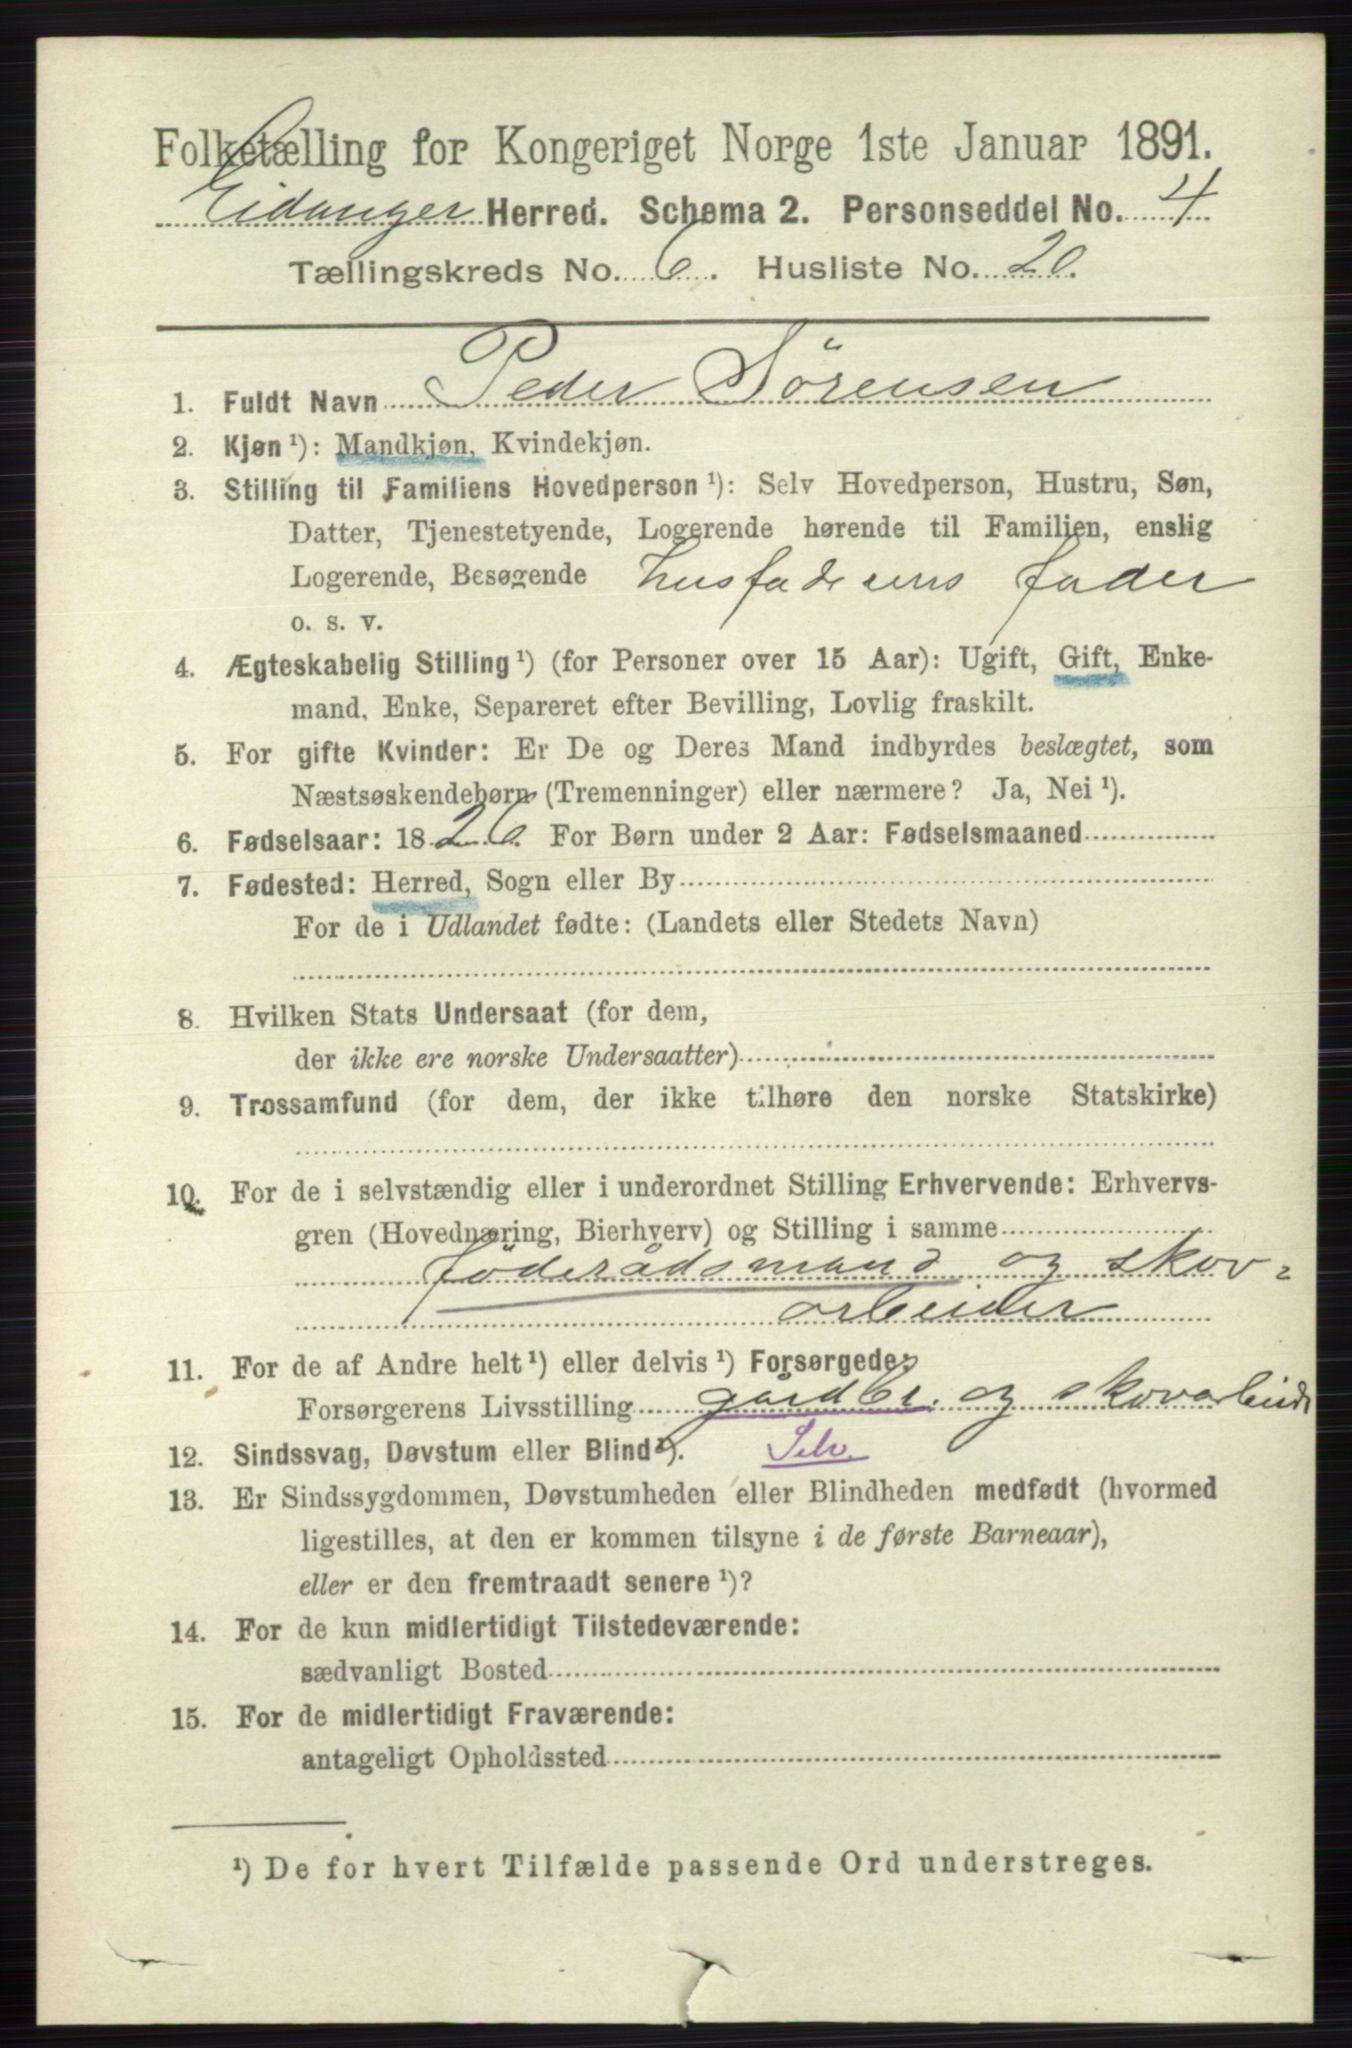 Folketælling for Kongeriget Norge 1ste Januar 1891.
Eidanger Herred. Schema 2. Personseddel No. 4
Tællingskreds No. 6. Husliste No. 20.
1. Fuldt Navn Peder Sörensen
2. Kjøn ¹): Mandkjøn, Kvindekjøn.
3. Stilling til Familiens Hovedperson ¹): Selv Hovedperson, Hustru, Søn,
Datter, Tjenestetyende, Logerende hørende til Familien, enslig
Logerende, Besøgende husfaderens fader
o. s. v.
4. Ægteskabelig Stilling ¹) (for Personer over 15 Aar): Ugift, Gift, Enke-
mand, Enke, Separeret efter Bevilling, Lovlig fraskilt.
5. For gifte Kvinder: Er De og Deres Mand indbyrdes beslægtet, som
Næstsøskendebørn (Tremenninger) eller nærmere? Ja, Nei ¹).
6. Fødselsaar: 1826. For Børn under 2 Aar: Fødselsmaaned
7. Fødested: Herred, Sogn eller By
For de i Udlandet fødte: (Landets eller Stedets Navn)
8. Hvilken Stats Undersaat (for dem,
der ikke ere norske Undersaatter)
9. Trossamfund (for dem, der ikke tilhøre den norske Statskirke)
10. For de i selvstændig eller i underordnet Stilling Erhvervende: Erhvervs-
gren (Hovednæring, Bierhverv) og Stilling i samme
föderådsmand og skov-
arbeider
11. For de af Andre helt ¹) eller delvis ¹) Forsørgede:
Forsørgerens Livsstilling gårdbr. og skovarbeide
12. Sindssvag, Døvstum eller Blind ¹). Selv.
13. Er Sindssygdommen, Døvstumheden eller Blindheden medfødt (hvormed
ligestilles, at den er kommen tilsyne i de første Barneaar),
eller er den fremtraadt senere ¹)?
14. For de kun midlertidigt Tilstedeværende:
sædvanligt Bosted
15. For de midlertidigt Fraværende:
antageligt Opholdssted
¹) De for hvert Tilfælde passende Ord understreges.